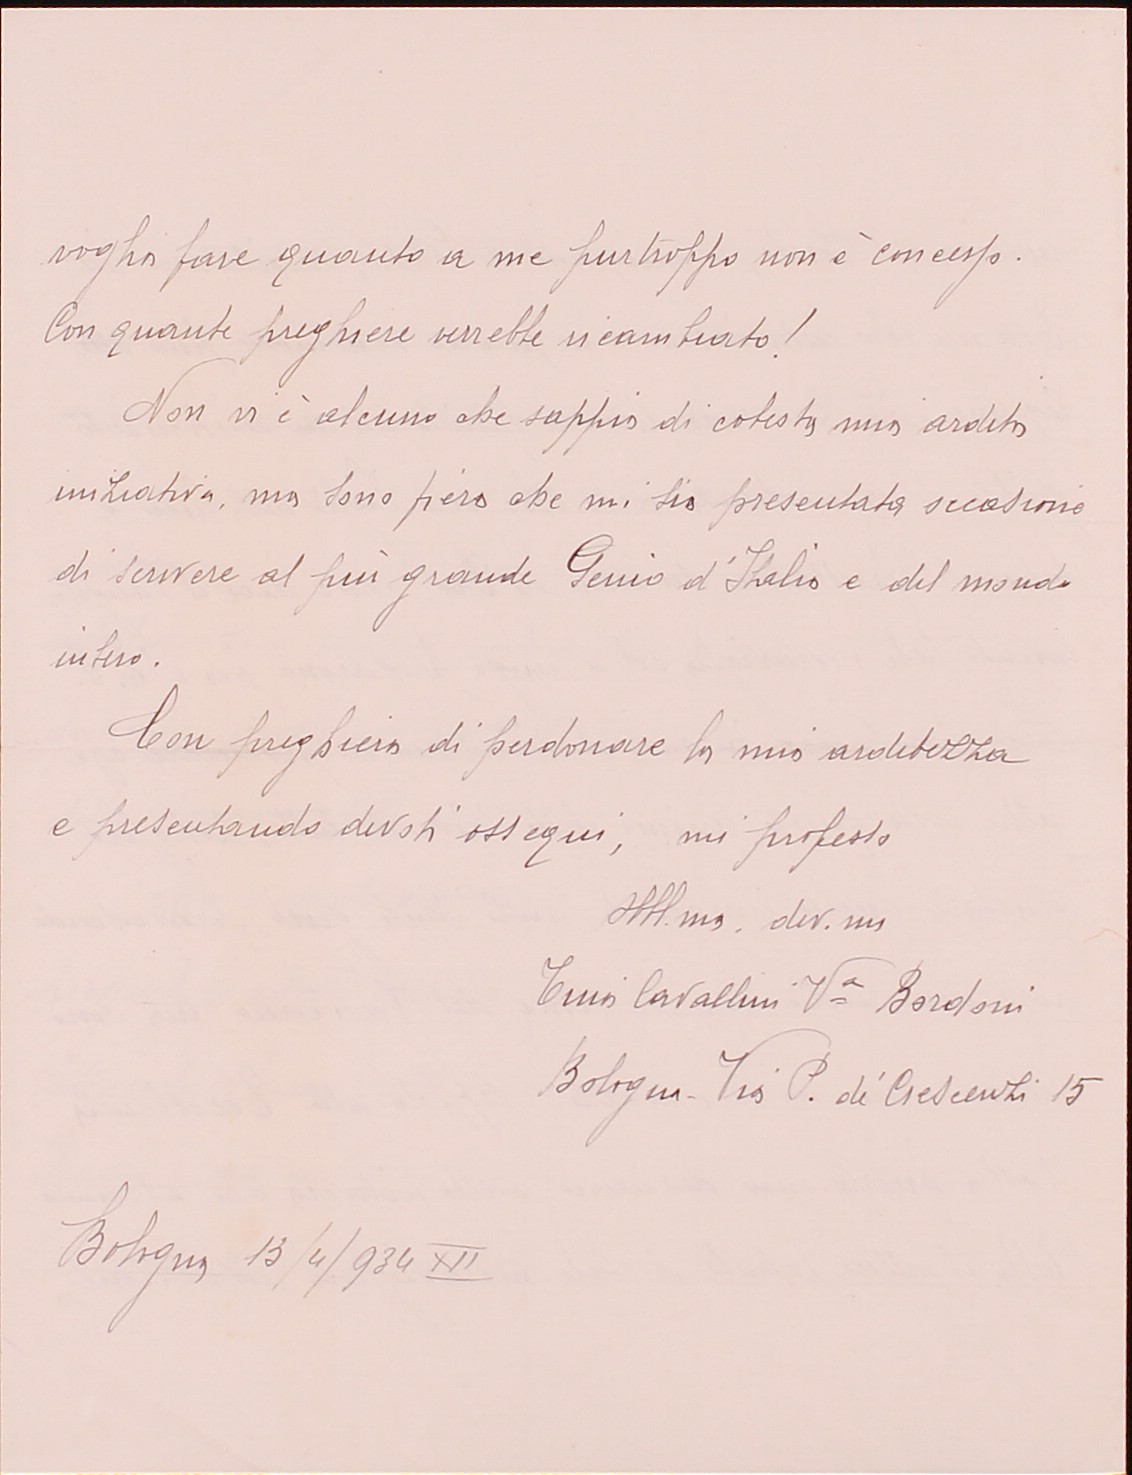 voglia fare quanto a me purtroppo non è concesso.
Con quante preghiere verrebbe ricambiato!
Non vi è alcuno che sappia di cotesta mia ardita
iniziativa, ma sono fiera che mi sia presentata occasione
di scrivere al più grande Genio d'Italia e del mondo
intero.
Con preghiera di perdonare la mia arditezza
e presentando devoti ossequi, mi professo
dev.ma
Tina Cavallini Vᵃ Bordoni
Bologna - Via P. de' Crescenzi 15
Bologna 13/4/934 XII